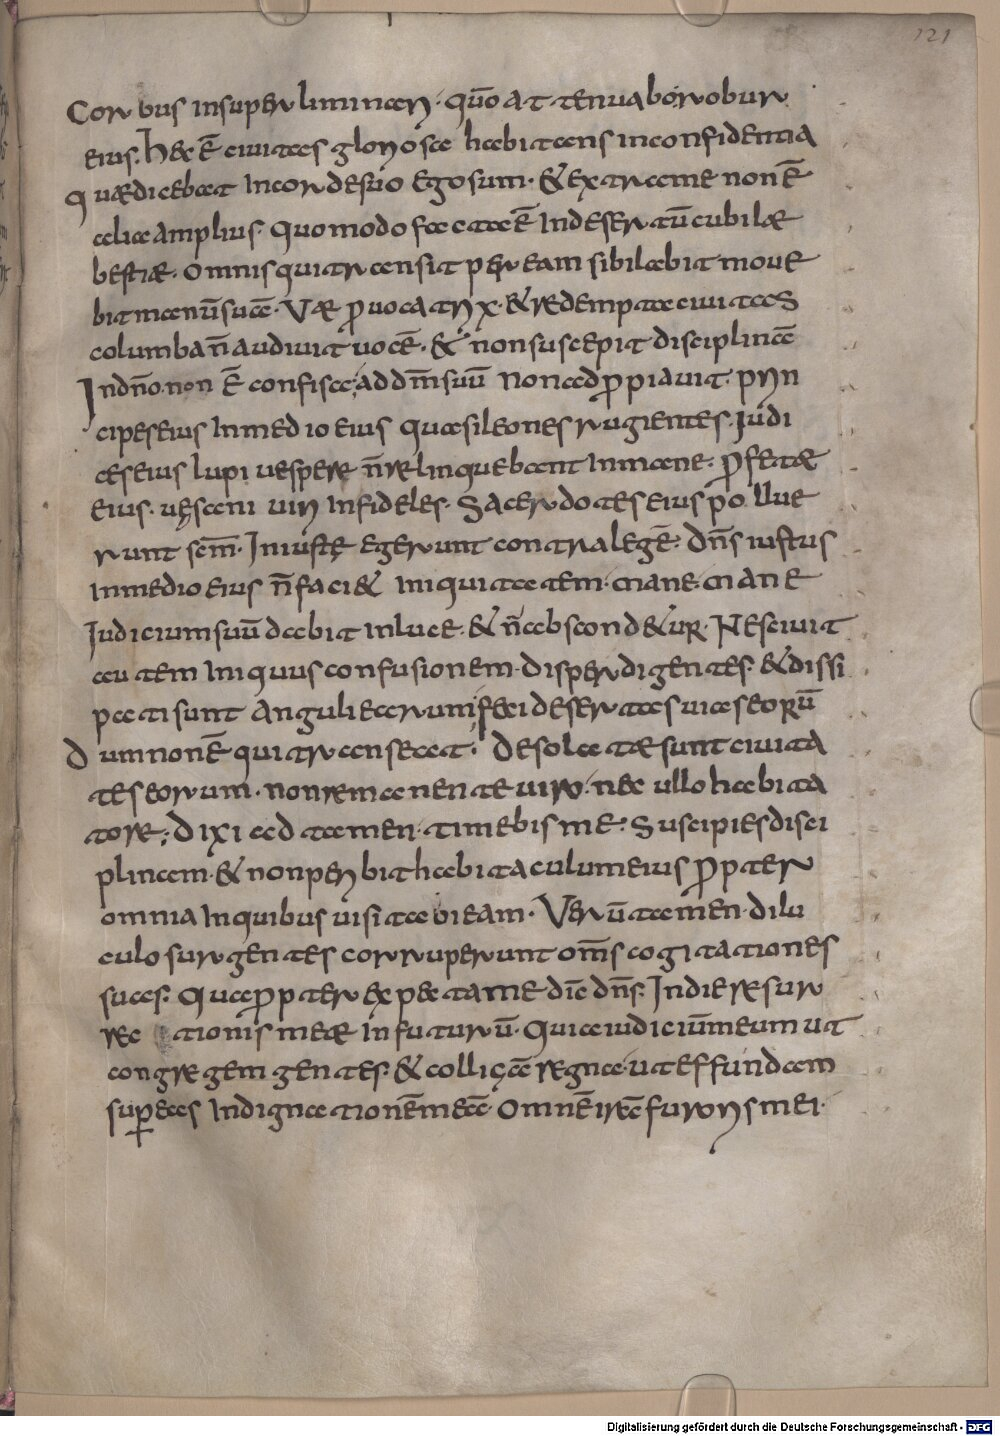 121
Coruus insuper liminari. quō attenuabo robur
eius. Hęc ē ciuitas gloriosa habitans inconfidentia
Quæ dicebat Incorde suo Ego sum. & extra me non ē
alia amplius. Quomodo facta ē Indesertū cubilæ
bestiæ. omnis qui transit per eam sibilabit moue
bit manū suā. Væ prouocatrix. & rædempta ciuitas
columba n̄ audiuit uocē. & non suscepit disciplinā
In dn̄o. non ē confisa; ad dm̄ suū Non adpropiauit. prin
cipes eius Inmedio eius quasi leones rugientes. Iudi
ces eius lupi uesperæ n̄ rælinquebant Inmane. profetæ
eius. uęsani uiri Infideles. Sacerdotes eius pollue
runt scm̄. Iniustę egerunt contra legē. Dn̄s iustus
Inmedio eius n̄ faci& Iniquitatem. mane. mane
Iudicium suū dabit Inluce. & n̄ abscond&ur. Nesciuit
autem Iniquus confusionem. disperdi gentes. & dissi
pati sunt Anguli earum; feci desertas uias eorū
Dum non ē qui transeat. Desolatæ sunt ciuita
tes eorum. non ræmanente uiro. nec ullo habita
toræ; Dixi ad tamen. timebis me. Suscipies disci
plinam. & non peribit habitaculum eius propter
omnia Inquibus uisitabi eam. Verū tamen. dilu
culo surgentes corruperunt om̄s cogitationes
suas. Quapropter expecta me dic̄ dn̄s. Indie ræsur
ræc tionis meæ Infuturū. Quia iudiciū meum ut
congrægem gentes. & colligā rægna. ut effundam
super eas Indignationē meā. omnē irā furoris mei.
Digitalisierung gefördert durch die Deutsche Forschungsgemeinschaft - DFG